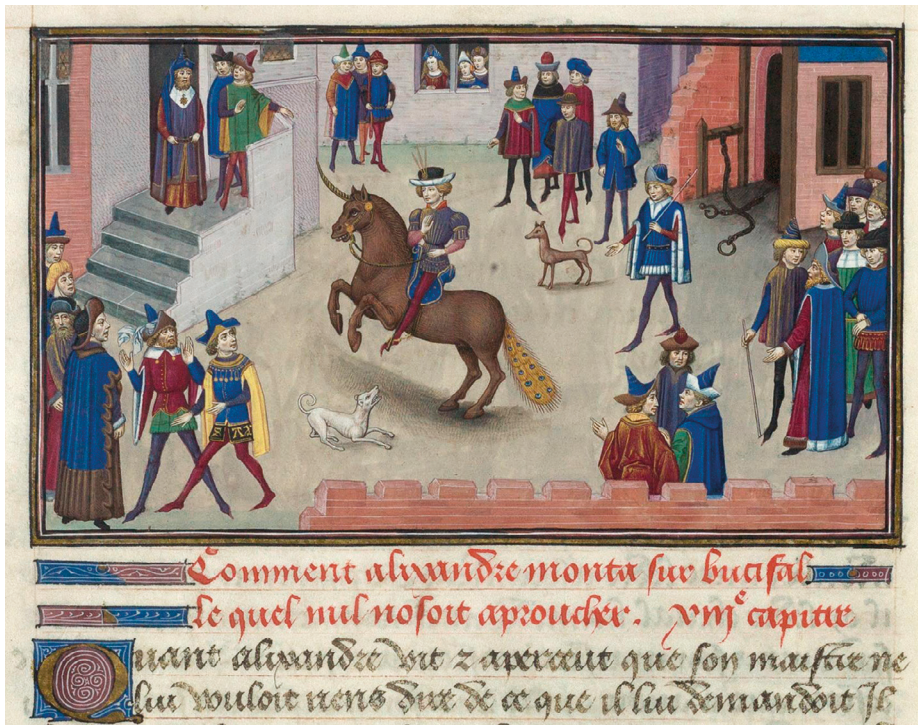 Comment alixandre monta sur bucifal
le quel nul nosoit aproucher. viijᵉ capitre
Quant alixandre vit z aperceut que son maistre ne
lui vouloit riens dire de ce que il lui demandoit Il